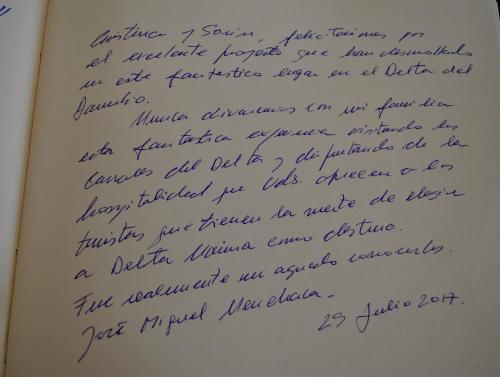 Cristina y Sorin, felicitaciones por
el excelente proyecto que han desarrollado
en este fantastico lugar en el Delta del
Danubio.
Nunca olvidaremos con mi familia
esta fantastica experiencia visitando los
canales del Delta y disfrutando de la
hospitalidad que Uds. ofrecen a los
turistas que tienen la suerte de elegir
a Delta como destino.
Fue realmente un agrado conocerlos.
José Miguel
29 Julio 2017.